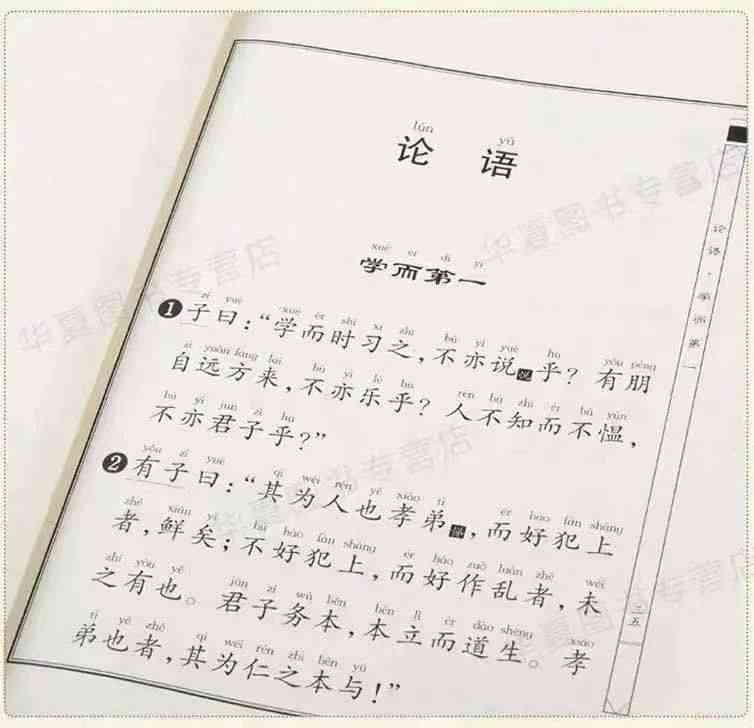 lún yǔ
论 语
xué ér dì yī
学而第一
zǐ yuē xué ér shí xí zhī bú yì yuè hū yǒu péng
❶子曰：“学而时习之，不亦说乎？有朋
zì yuǎn fāng lái bú yì lè hū rén bù zhī ér bú yùn
自远方来，不亦乐乎？人不知而不愠，
bú yì jūn zǐ hū
不亦君子乎？”
yǒu zǐ yuē qí wéi rén yě xiào tì ér hào fàn shàng
❷有子曰：“其为人也孝弟，而好犯上
zhě xiǎn yǐ bú hào fàn shàng ér hào zuò luàn zhě wèi
者，鲜矣；不好犯上，而好作乱者，未
zhī yǒu yě jūn zǐ wù běn běn lì ér dào shēng xiào
之有也。君子务本，本立而道生。孝
tì yě zhě qí wéi rén zhī běn yú
弟也者，其为仁之本与！”
论语·学而第一
华夏图书专营店
华夏图书专营店
华夏图书专营店